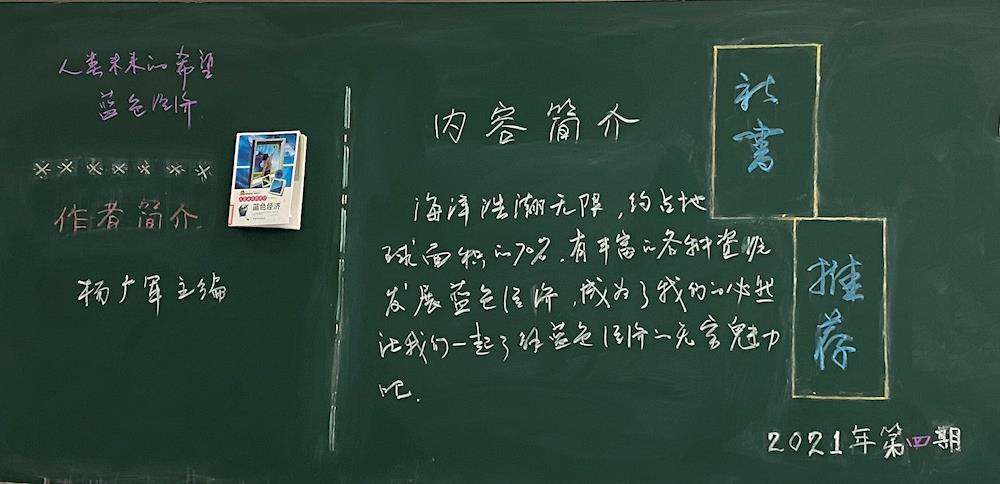 人类未来的希望
蓝色经济
作者简介.
杨广军主编
蓝色经济
内容简介
海洋浩瀚无限,约占地
球面积的70%,有丰富的各种资源
发展蓝色经济,成为了我们的必然
让我们一起了解蓝色经济的无穷魅力
吧.
新书
推荐
2021年第四期